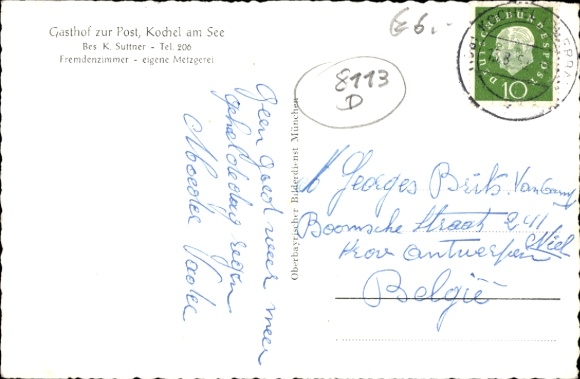 Gasthof zur Post, Kochel am See
Bes K. Suttner - Tel. 206
Fremdenzimmer - eigene Metzgerei
€6.-
8113
D
DEUTSCHE BUNDESPOST
10
Geen Goed weer meer
geheele dag regen
Moeder Vader
Oberbayerischer Bilderdienst München
Georges Brits. Van Camp
Boomsche Straat 241
Niel
Prov Antwerpen
België